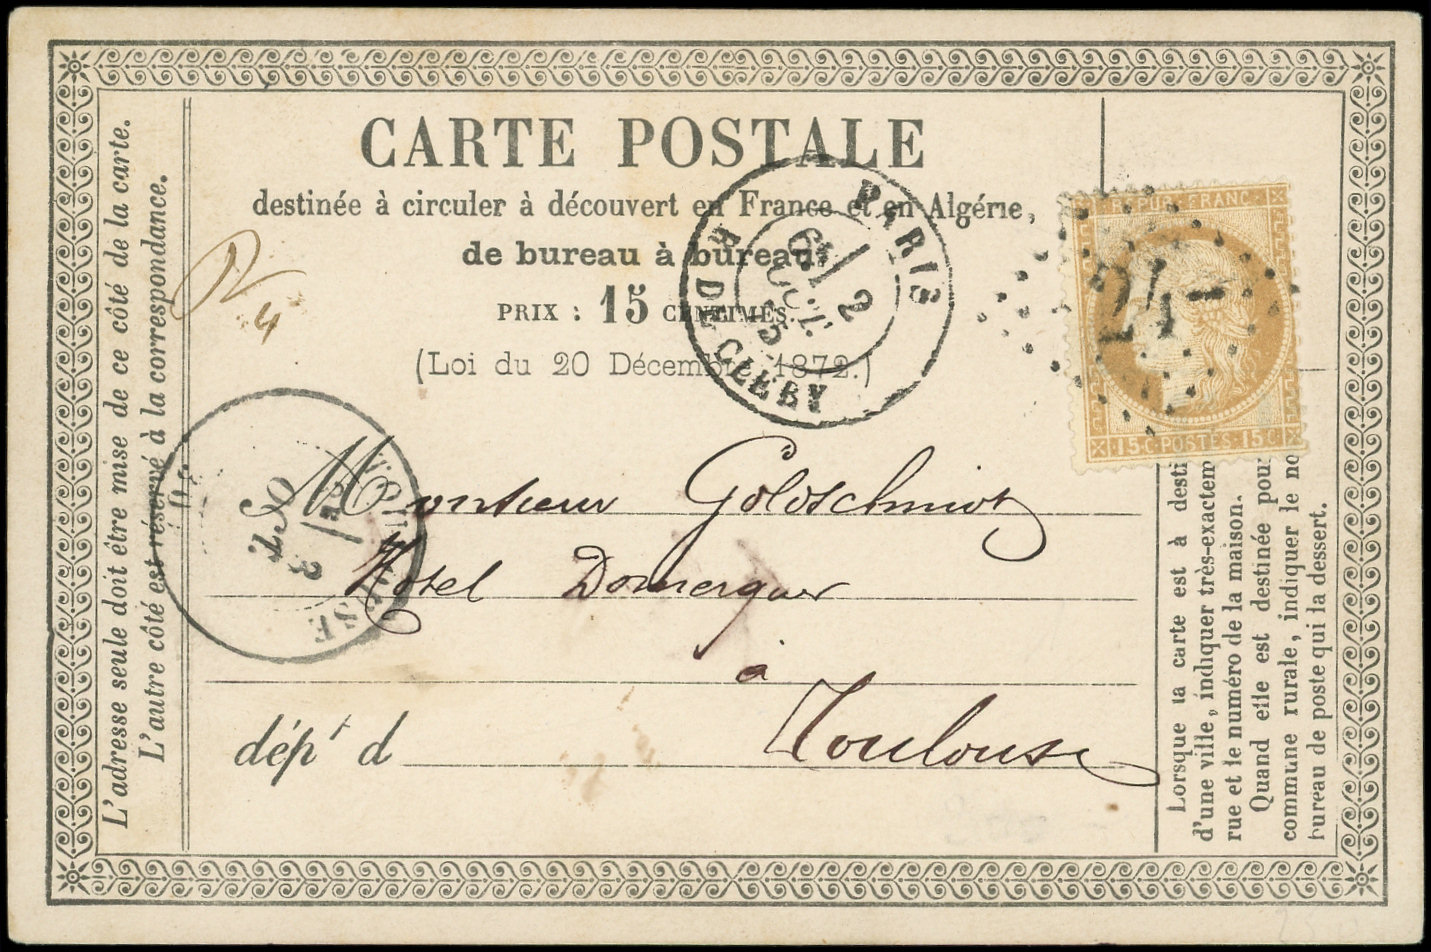 CARTE POSTALE
destinée à circuler à découvert en France et en Algérie,
de bureau à bureau.
PRIX : 15 CENTIMES.
(Loi du 20 Décembre 1872.)
L'adresse seule doit être mise de ce côté de la carte.
L'autre côté est réservé à la correspondance.
4
PARIS
R. DE CLÉRY
6E
2
OCT.
REPUB. FRANC.
24
15 C. POSTES. 15 C.
TOULOUSE
3
OCT
Monsieur Goldschmidt
Hotel Domergue
à
Toulouse
dépt d
Lorsque la carte est à desti
d'une ville, indiquer très-exactem
rue et le numéro de la maison.
Quand elle est destinée pour
commune rurale, indiquer le no
bureau de poste qui la dessert.